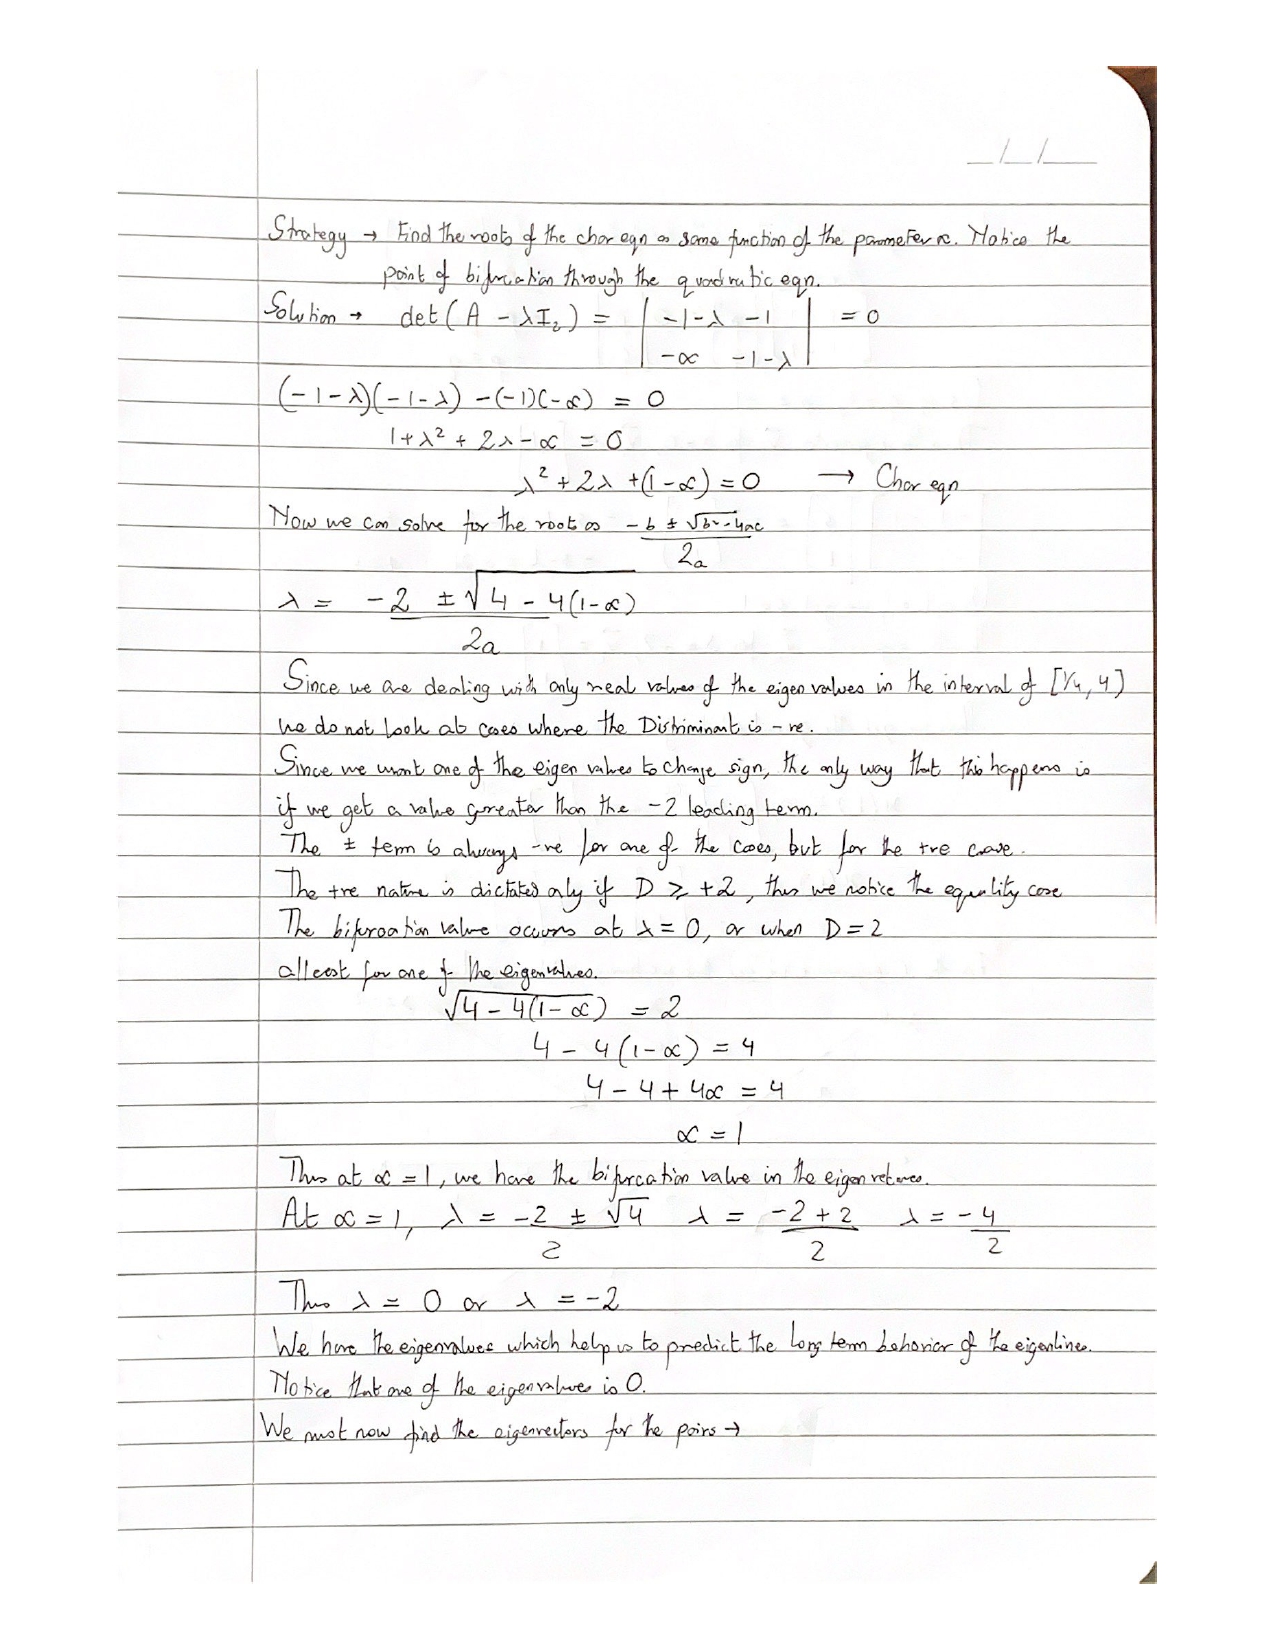 _/_/__
Strategy → Find the roots of the char eqn as some function of the parameter α. Notice the
point of bifurcation through the quadratic eqn.
Solution → det(A - λI₂) = | -1-λ -1 | = 0
| -α -1-λ |
(-1-λ)(-1-λ) -(-1)(-α) = 0
1+λ² + 2λ-α = 0
λ² + 2λ +(1-α) = 0 → Char eqn
Now we can solve for the root as -b ± √b²-4ac
2a
λ = -2 ± √4 - 4(1-α)
2a
Since we are dealing with only real values of the eigen values in the interval of [1/4, 4)
we do not look at cases where the Distriminant is -ve.
Since we want one of the eigen values to change sign, the only way that this happens is
if we get a value greater than the -2 leading term.
The ± term is always -ve for one of the cases, but for the +ve case.
The +ve nature is dictated only if D ≥ +2, thus we notice the equality case
The bifurcation value occurs at λ = 0, or when D = 2
atleast for one of the eigenvalues.
√4 - 4(1-α) = 2
4 - 4(1-α) = 4
4 - 4 + 4α = 4
α = 1
Thus at α = 1, we have the bifurcation value in the eigenvalues.
At α = 1, λ = -2 ± √4 λ = -2+2 λ = -4
2 2 2
Thus λ = 0 or λ = -2
We have the eigenvalues which help us to predict the long term behavior of the eigenlines.
Notice that one of the eigenvalues is 0.
We must now find the eigenvectors for the pairs →